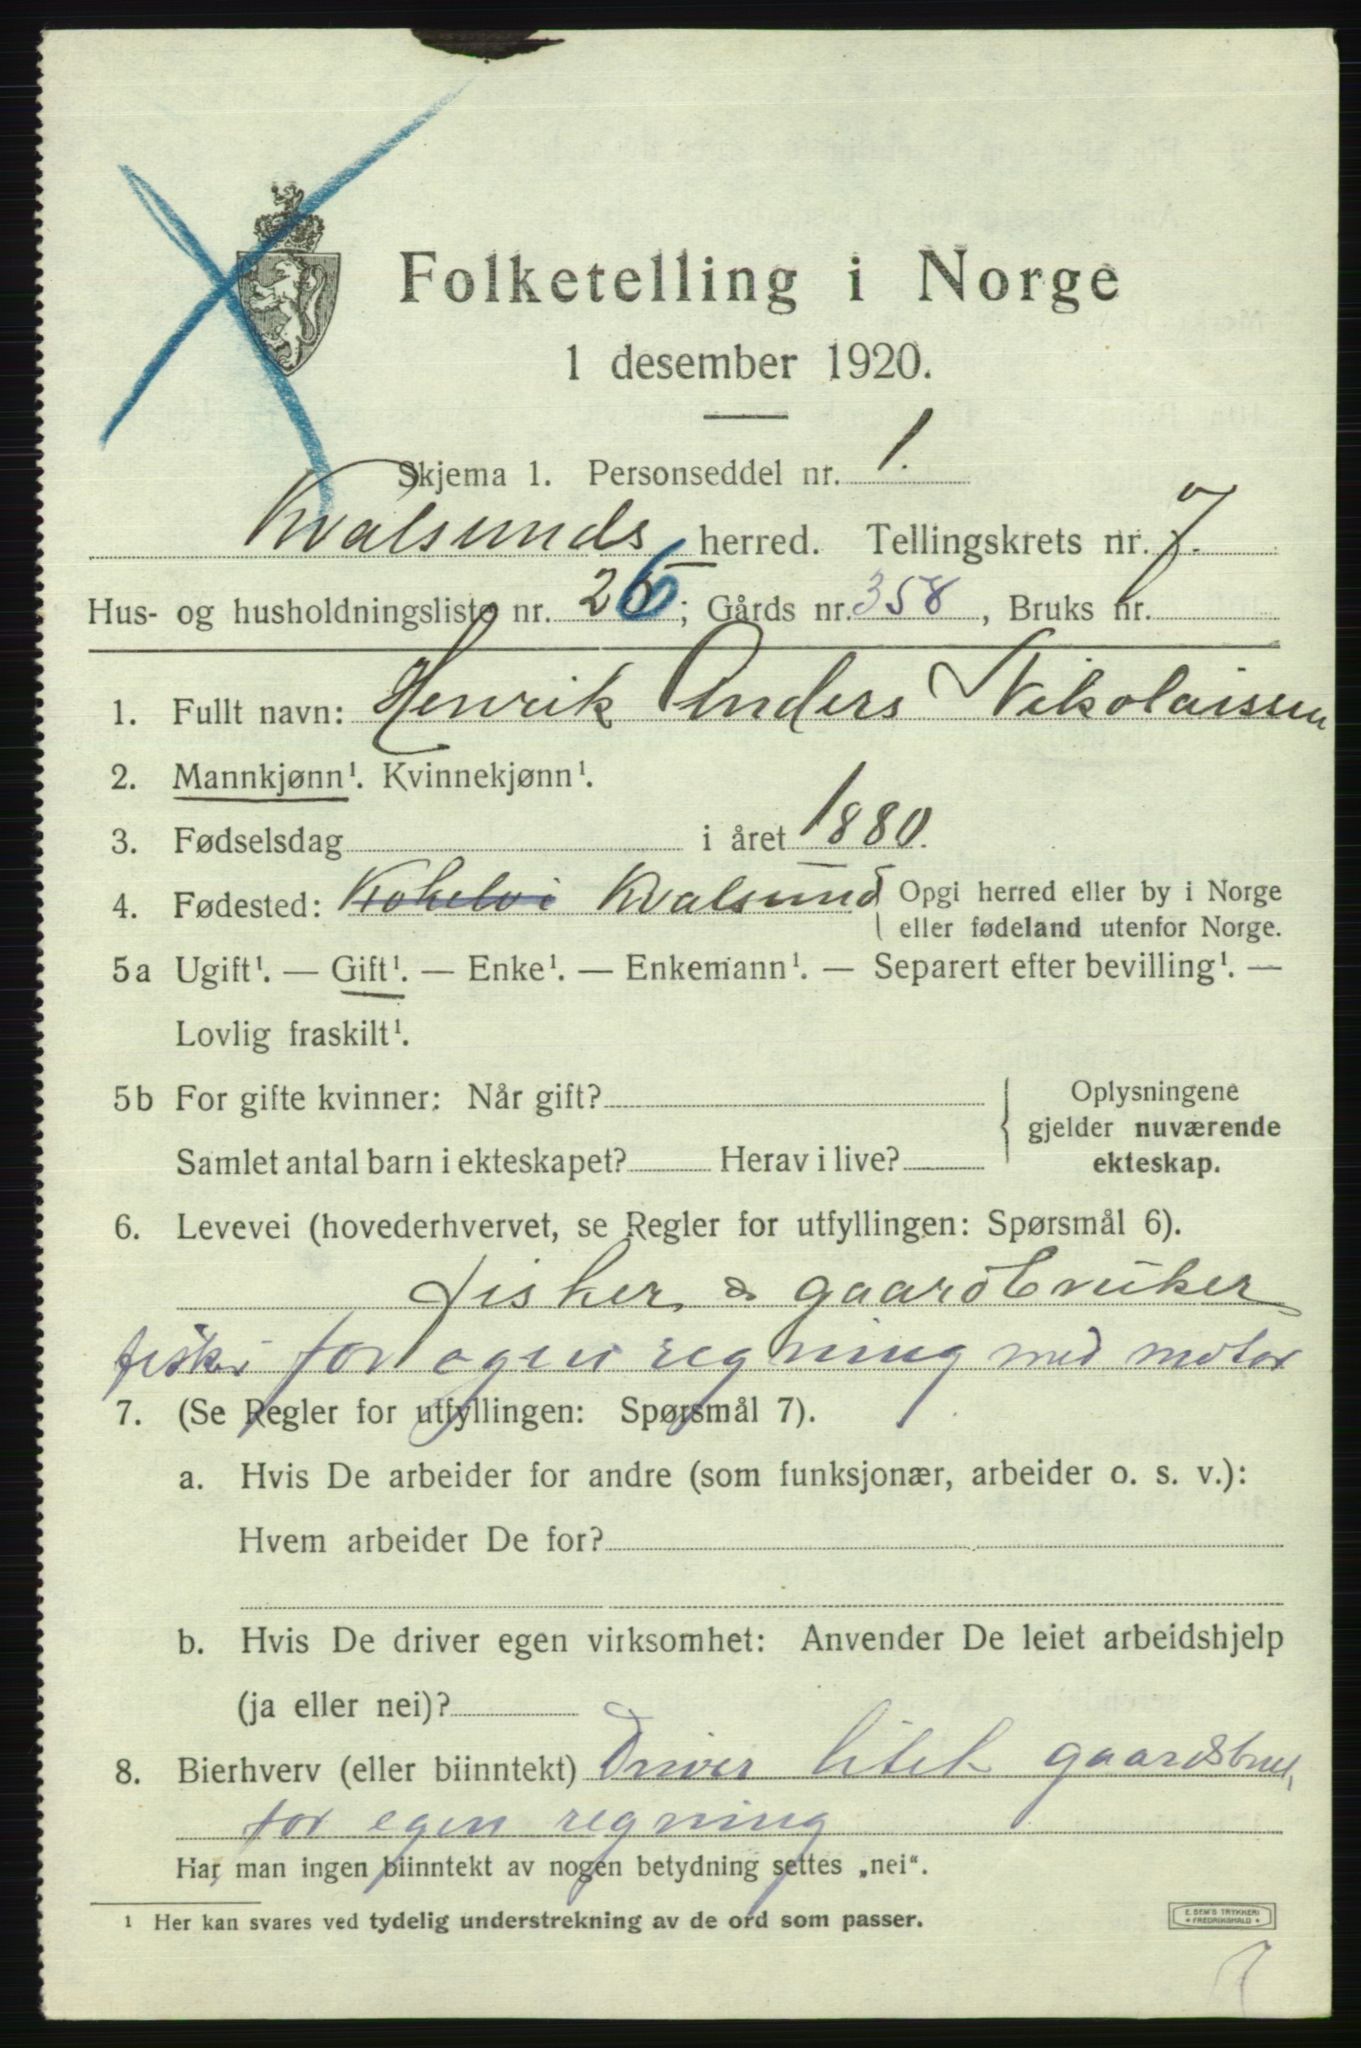 Folketelling i Norge
1 desember 1920.
Skjema 1. Personseddel nr. 1.
Kvalsunds herred. Tellingskrets nr. 7.
Hus- og husholdningsliste nr. 26; Gårds nr. 358, Bruks nr.
1. Fullt navn: Henrik Anders Nikolaissen
2. Mannkjønn¹. Kvinnekjønn¹.
3. Fødselsdag i året 1880.
4. Fødested: Kokelvi Kvalsund { Opgi herred eller by i Norge
eller fødeland utenfor Norge.
5a Ugift¹. — Gift¹. — Enke¹. — Enkemann¹. — Separert efter bevilling¹. —
Lovlig fraskilt¹.
5b For gifte kvinner: Når gift?
Samlet antal barn i ekteskapet? Herav i live?
Oplysningene
gjelder nuværende
ekteskap.
6. Levevei (hovederhvervet, se Regler for utfyllingen: Spørsmål 6).
Fisker & gaardbruker
fisker for egen regning med motor
7. (Se Regler for utfyllingen: Spørsmål 7).
a. Hvis De arbeider for andre (som funksjonær, arbeider o. s. v.):
Hvem arbeider De for?
b. Hvis De driver egen virksomhet: Anvender De leiet arbeidshjelp
(ja eller nei)?
8. Bierhverv (eller biinntekt) Driver litet gaardsbruk
for egen regning
Har man ingen biinntekt av nogen betydning settes „nei“.
¹ Her kan svares ved tydelig understrekning av de ord som passer.
E. SEM'S TRYKKERI
FREDRIKSHALD